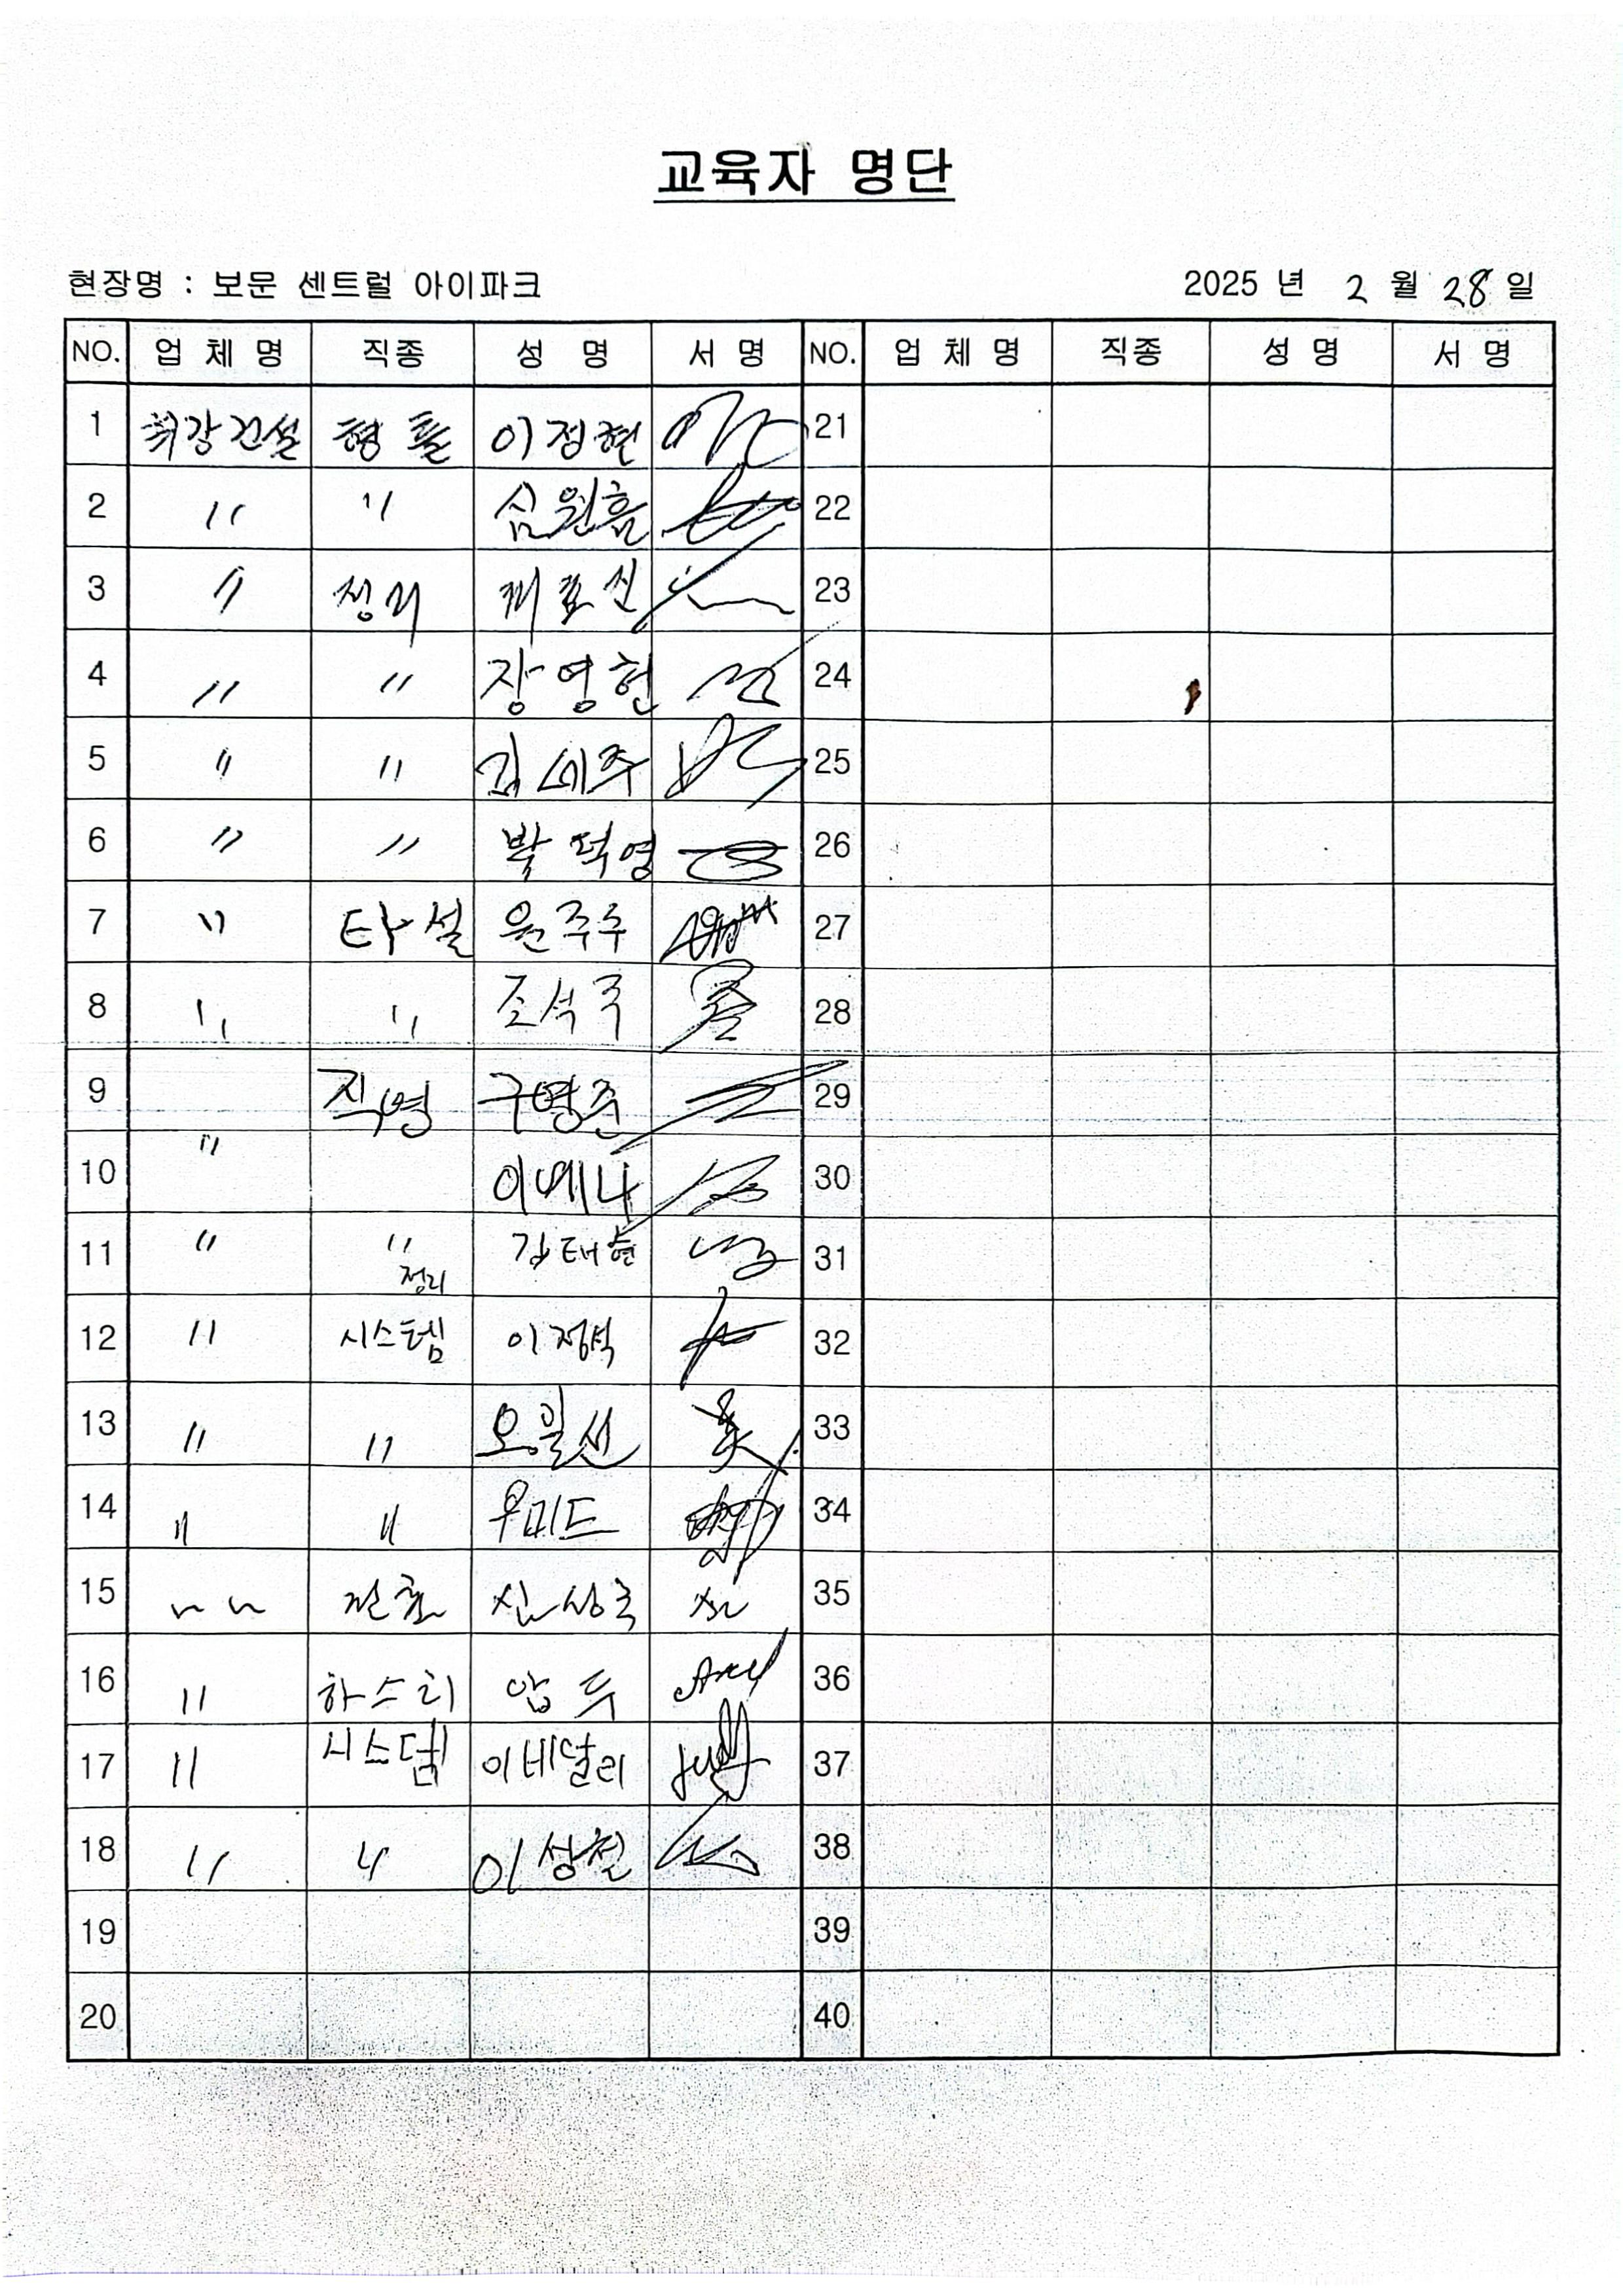 교육자 명단
현장명 : 보문 센트럴 아이파크 2025 년 2 월 28 일
NO. 업체명 직종 성 명 서 명 NO. 업체명 직종 성 명 서 명
1 최강건설 형틀 이정현 21
2 〃 〃 심원흠 22
3 〃 정리 23
4 〃 〃 장영헌 24
5 〃 〃 김세주 25
6 〃 〃 박덕영 26
7 〃 타설 윤주주 27
8 〃 〃 조석주 28
9 직영 구명준 29
10 〃 이베나 30
11 〃 〃 정리 김태현 31
12 〃 시스템 이정석 32
13 〃 〃 33
14 〃 〃 우미드 34
15 〃 신상국 35
16 〃 하스리 압두 36
17 〃 시스템 이베날리 37
18 〃 〃 이상철 38
19 39
20 40